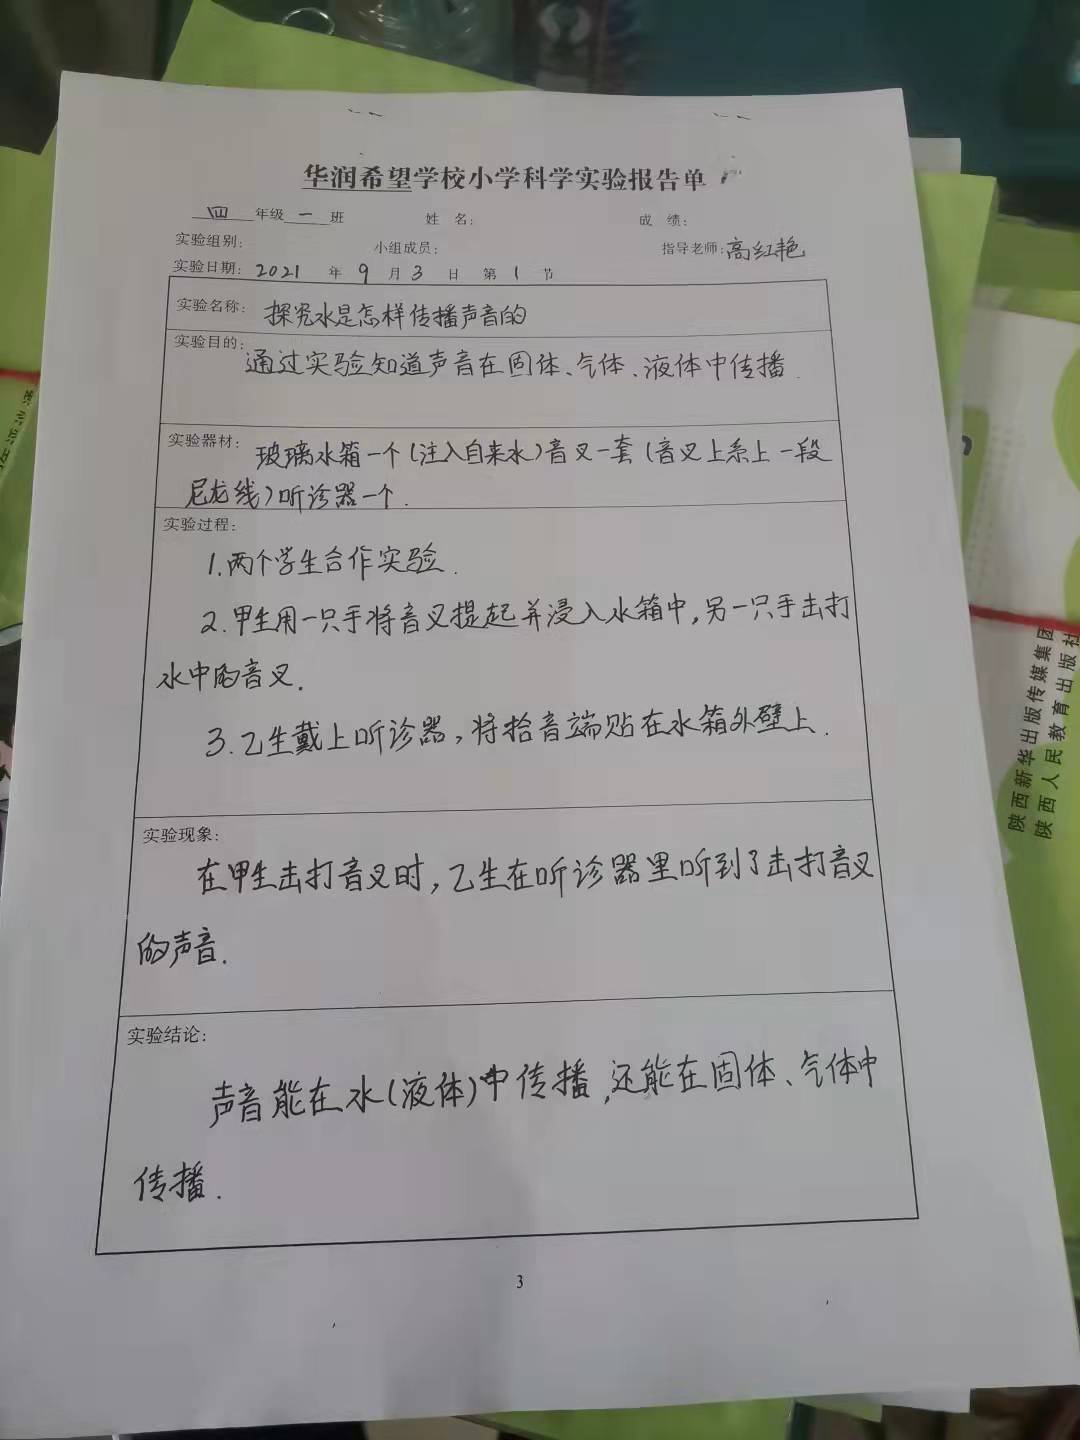 华润希望学校小学科学实验报告单
四 年级 一 班 姓 名: 成 绩:
实验组别: 小组成员: 指导老师:高红艳
实验日期: 2021 年 9 月 3 日 第 1 节
实验名称: 探究水是怎样传播声音的
实验目的:通过实验知道声音在固体、气体、液体中传播.
实验器材: 玻璃水箱一个(注入自来水)音叉一套(音叉上系上一段
尼龙线)听诊器一个.
实验过程:
1.两个学生合作实验.
2.甲生用一只手将音叉提起并浸入水箱中,另一只手击打
水中的音叉.
3.乙生戴上听诊器,将拾音端贴在水箱外壁上.
实验现象:
在甲生击打音叉时,乙生在听诊器里听到了击打音叉
的声音.
实验结论:
声音能在水(液体)中传播,还能在固体、气体中
传播.
3
陕西新华出版传媒集团
陕西人民教育出版社